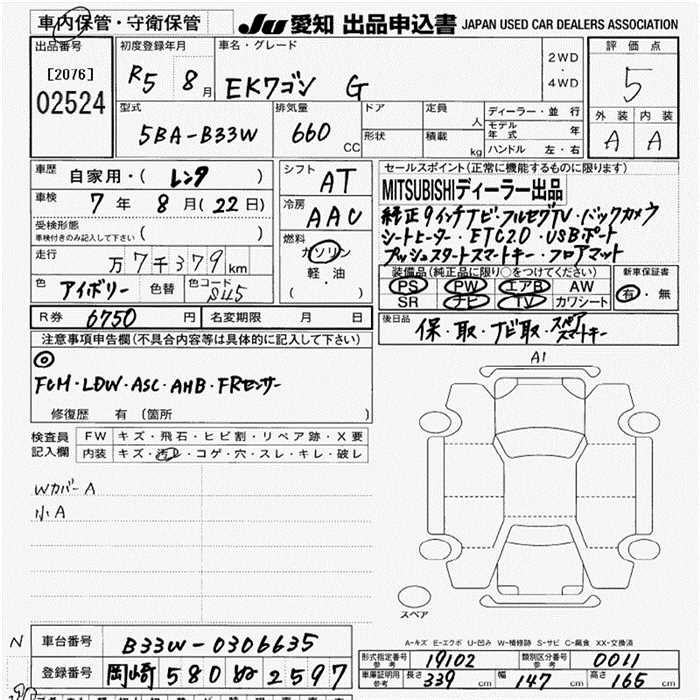 車内保管・守衛保管 JU 愛知 出品申込書 JAPAN USED CAR DEALERS ASSOCIATION
出品番号 [2076] 02524
初度登録年月 R5 8月
車名・グレード EKワゴン G
2WD・4WD
評価点 5
外装 内装
A A
型式 5BA-B33W
排気量 660 CC
ドア 定員 人
形状 積載 kg
ディーラー・並行
モデル年式 年
ハンドル 左・右
車歴 自家用・( レンタ )
車検 7年 8月 (22日)
受検形態
車検付きのみ記入して下さい ( )
走行 万7千379km
色 アイボリー 色替 色コード S45
シフト AT
冷房 AAC
燃料 ガソリン
軽・油
( )
セールスポイント(正常に機能するものに限ります)
MITSUBISHIディーラー出品
純正9インチナビ・フルセグTV・バックカメラ
シートヒーター・ETC2.0・USBポート
プッシュスタートスマートキー・フロアマット
装備品(純正品に限り○をつけてください) 新車保証書
PS PW エアB AW 有・無
SR ナビ TV カワシート
R券 6750円 名変期限 月 日
後日品 保・取・ナビ取・スペアスマートキー
注意事項申告欄(不具合内容等は具体的に記入して下さい)
◎
FCM・LDW・ASC・AHB・FRセンサー
修復歴 有 (箇所 )
検査員記入欄
FW キズ・飛石・ヒビ割・リペア跡・X要
内装 キズ・汚れ・コゲ・穴・スレ・キレ・破レ
A1
Wカバー A
小A
スペア
A-キズ E-エクボ U-凹み W-補修跡 S-サビ C-腐食 XX-交換済
N
車台番号 B33W-0306635
登録番号 岡崎 580 ぬ 2597
形式指定番号 参考 19102 類別区分番号 参考 0011
車庫証明用 参考 長さ 339 cm 幅 147 cm 高さ 165 cm